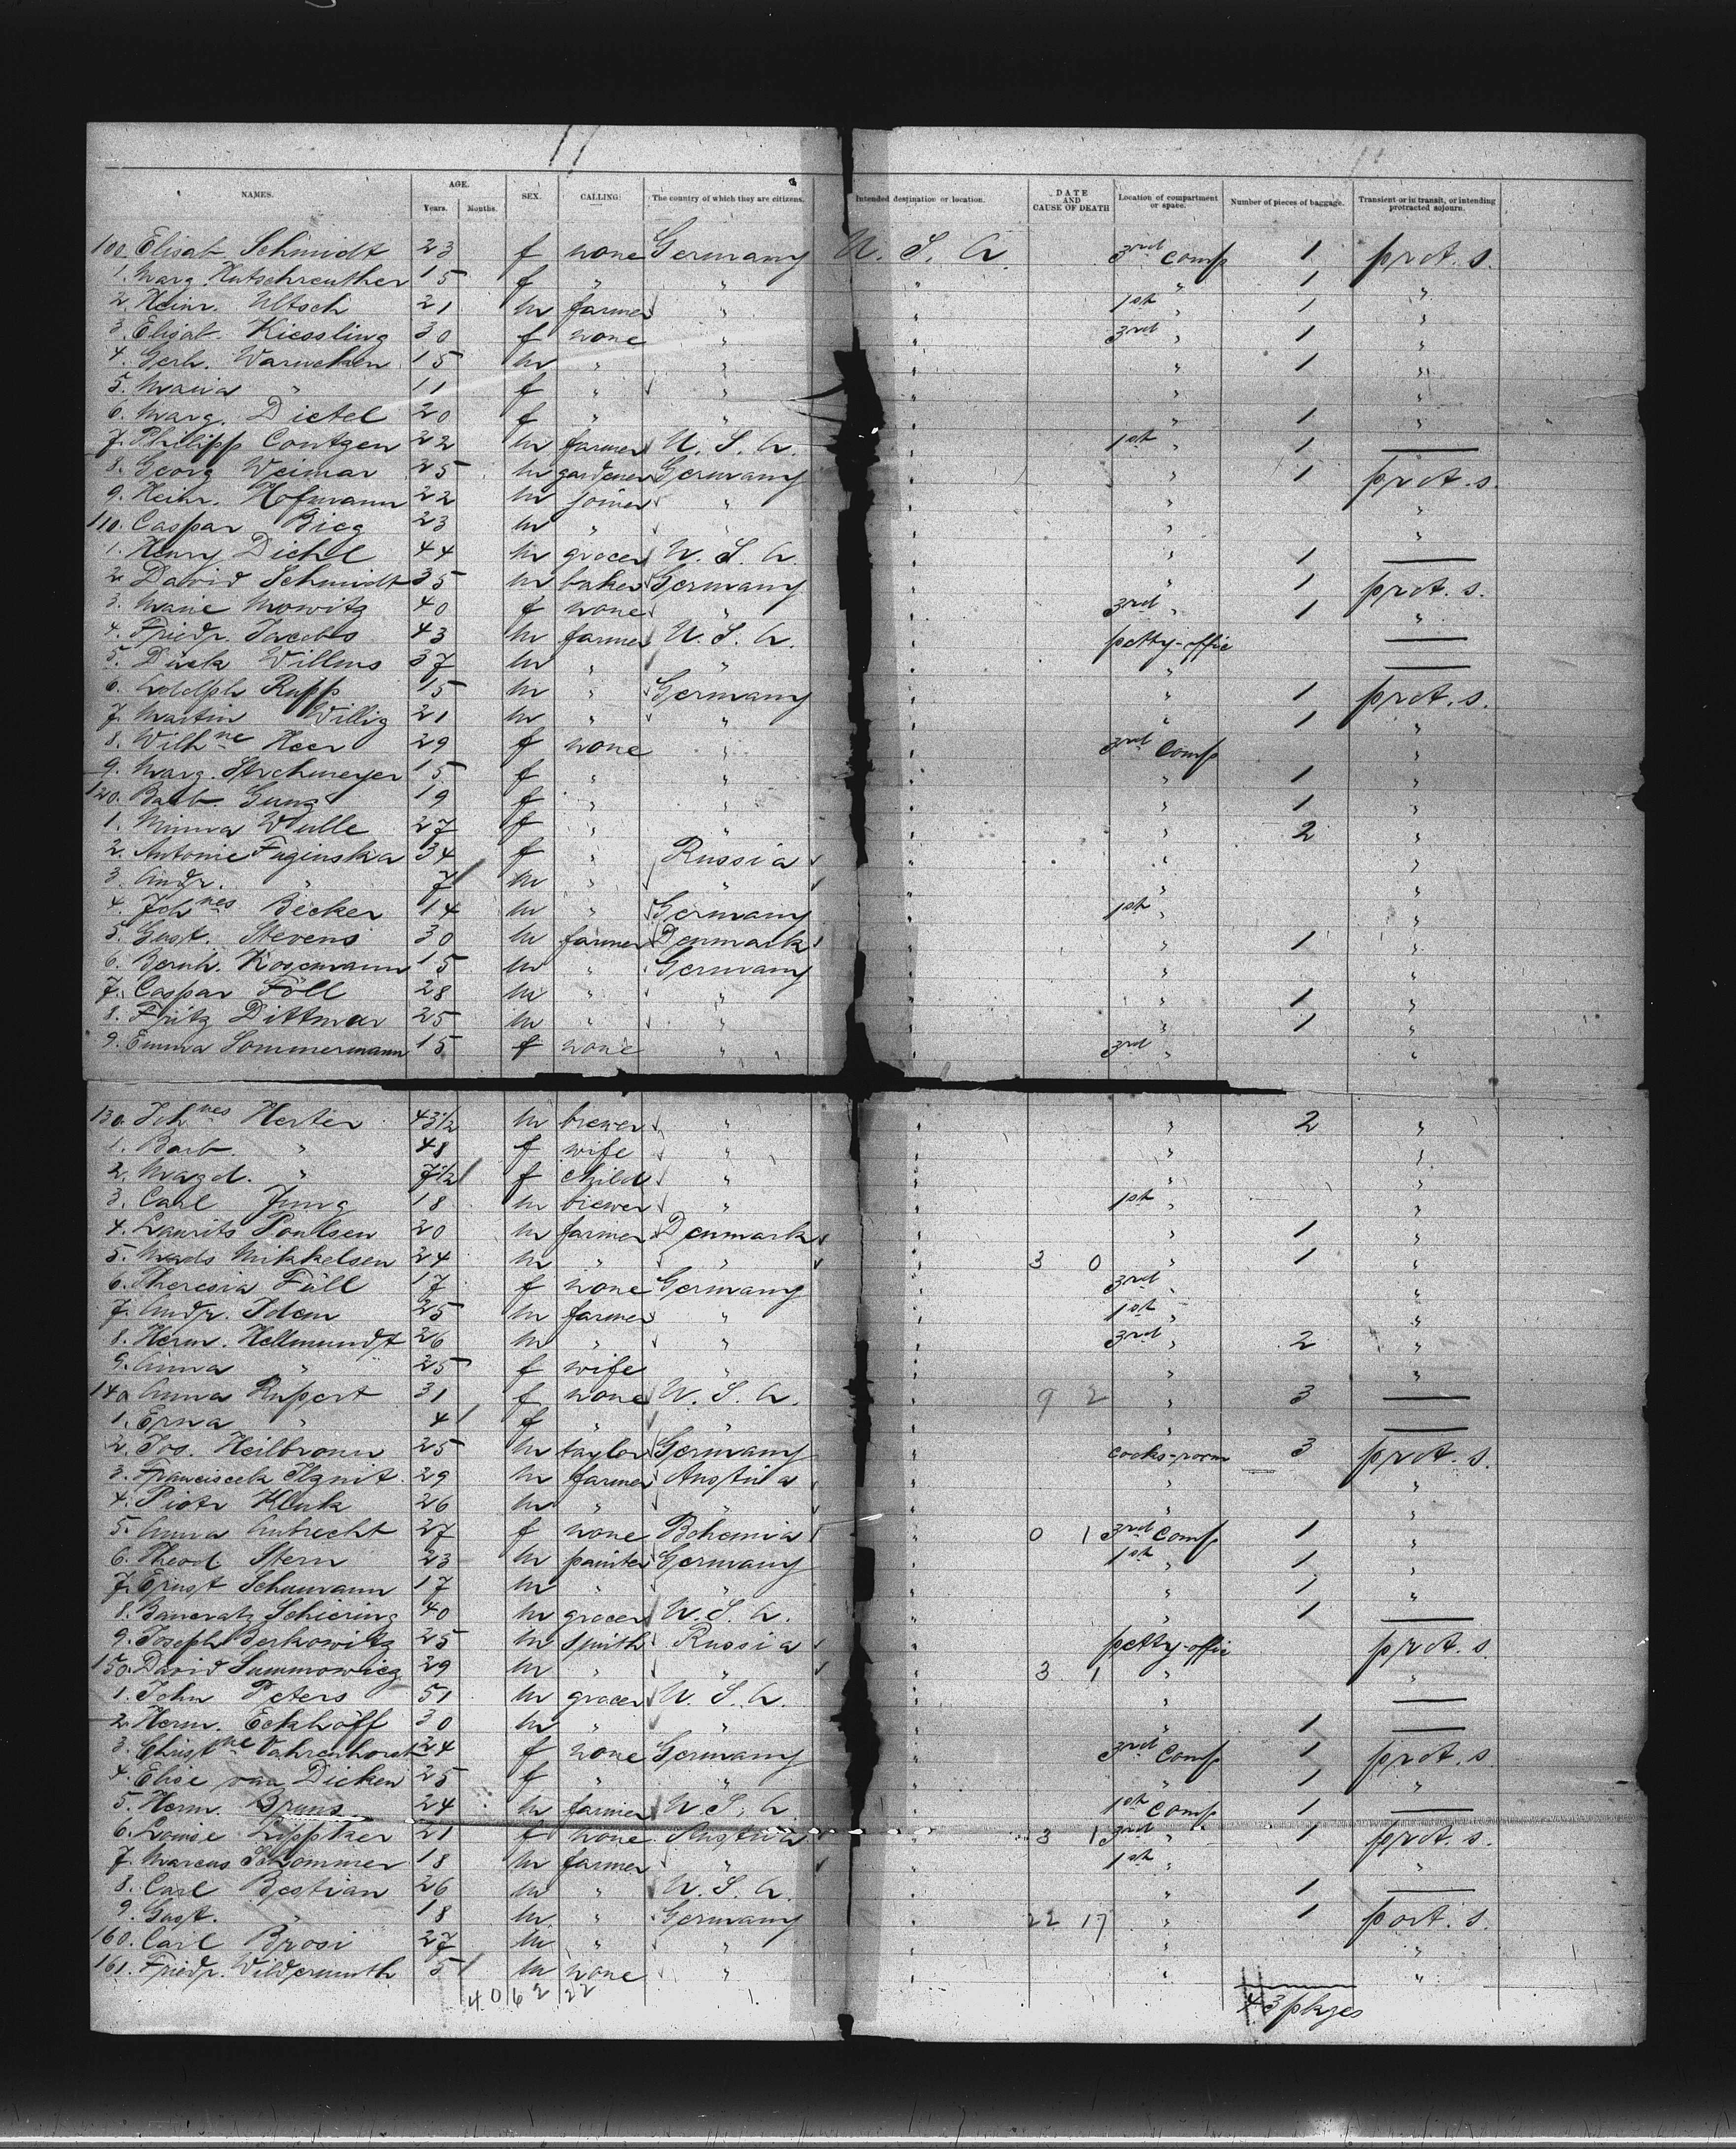 NAMES. AGE. Years. Months. SEX. CALLING. The country of which they are citizens. Intended destination or location. DATE AND CAUSE OF DEATH Location of compartment or space. Number of pieces of baggage. Transient or in transit, or intending protracted sojourn.
100. Elisab. Schmidt 23 f none Germany U. S. A. 3rd Comp 1 prot. s.
1. Marg. Hutschreuther 15 f " " " " 1 "
2. Heinr. Ultsch 21 m farmer " " 1st " 1 "
3. Elisab. Kiessling 30 f none " " 3rd " 1 "
4. Gerh. Warneken 15 m " " " " 1 "
5. Maria " 11 f " " " " "
6. Marg. Dietel 20 f " " " " 1 "
7. Philipp Contzen 22 m farmer U. S. A. " 1st " 1 —
8. Georg Weimar 25 m gardener Germany " " 1 prot. s.
9. Heinr. Hofmann 22 m joiner " " " "
110. Caspar Bieg 23 m " " " " "
1. Henry Diehl 44 m grocer U. S. A. " " 1 —
2. David Schmidt 35 m baker Germany " " 1 prot. s.
3. Marie Mowitz 40 f none " " 3rd " 1 "
4. Friedr. Jacobs 43 m farmer U. S. A. " petty-offic —
5. Dirk Willms 37 m " " " " —
6. Adolph Rupp 15 m " Germany " " 1 prot. s.
7. Martin Willig 21 m " " " " 1 "
8. Wilhne Heer 29 f none " " 3rd Comp "
9. Marg. 15 f " " " " 1 "
120. Barb. 19 f " " " " 1 "
1. Minna Wulle 27 f " " " " 2 "
2. Antonie Fuginska 34 f " Russia " " "
3. Andr. " 7 m " " " " "
4. Johnes Becker 14 m " Germany " 1st " "
5. Gust. Stevens 30 m farmer Denmark " " 1 "
6. Bernh. Kosemann 15 m " Germany " " "
7. Caspar Föll 28 m " " " " 1 "
8. Fritz Dittmar 25 m " " " " 1 "
9. Emma Sommermann 15 f none " " 3rd " "
130. Johnes Herter 43½ m brewer " " " 2 "
1. Barb. " 48 f wife " " " "
2. Magd. " 7½ f child " " " "
3. Carl Jung 18 m brewer " " 1st " "
4. Laurits Poulsen 20 m farmer Denmark " " 1 "
5. Mads Mikkelsen 24 m " " " 3 0 " 1 "
6. Theresia Füll 17 f none Germany " 3rd " "
7. Andr. Idem 25 m farmer " " 1st " "
8. Herm. Hellmundt 26 m " " " 3rd " 2 "
9. Anna " 25 f wife " " " "
140. Anna Rupert 31 f none U. S. A. " 9 2 " 3 —
1. Erna " 4 f " " " " —
2. Jos. Heilbronn 25 m taylor Germany " cooks-room 3 prot. s.
3. Franciscek 29 m farmer Austria " " "
4. Piotr Kluk 26 m " " " " "
5. Anna Aubrecht 27 f none Bohemia " 0 1 3rd Comp 1 "
6. Theod. Stern 23 m painter Germany " 1st " 1 "
7. Ernst Schumann 17 m " " " " 1 "
8. Bancratz Schiering 40 m grocer U. S. A. " " 1 —
9. Joseph Berkowitz 25 m smith Russia " petty-offic prot. s.
150. David Summowicz 29 m " " " 3 1 " "
1. John Peters 51 m grocer U. S. A. " " —
2. Herm. Eckhoff 30 m " " " " 1 —
3. Christne Vahrenhorst 24 f none Germany " 3rd Comp 1 prot. s.
4. Elise van Dicken 25 f " " " " 1 "
5. Herm. Bruns 24 m farmer U. S. A. " 1st Comp 1 —
6. Louise Lippker 21 f none Austria " 3 1 3rd " 1 prot. s.
7. Marcus Schommer 18 m farmer " " 1st " "
8. Carl Bestian 26 m " U. S. A. " " 1 —
9. Gust. " 18 m " Germany " 22 17 " 1 prot. s.
160. Carl Brosi 27 m " " " " "
161. Friedr. Wildermuth 5 m none " " " "
40 62 22 43 pkges